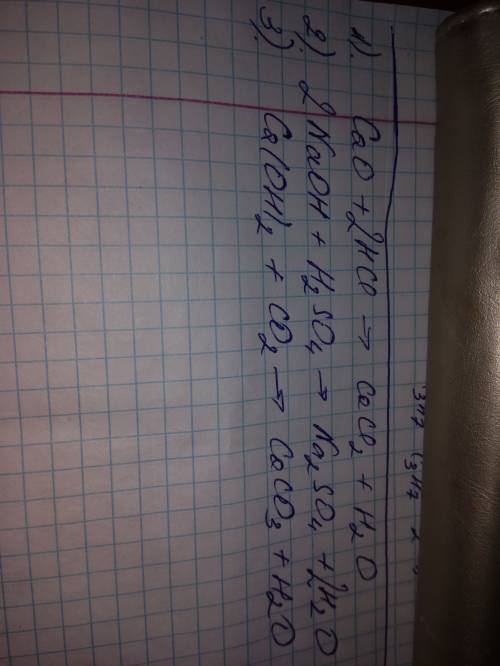 1). CaO + 2HCl → CaCl₂ + H₂O
2). 2NaOH + H₂SO₄ → Na₂SO₄ + 2H₂O
3). Ca(OH)₂ + CO₂ → CaCO₃ + H₂O